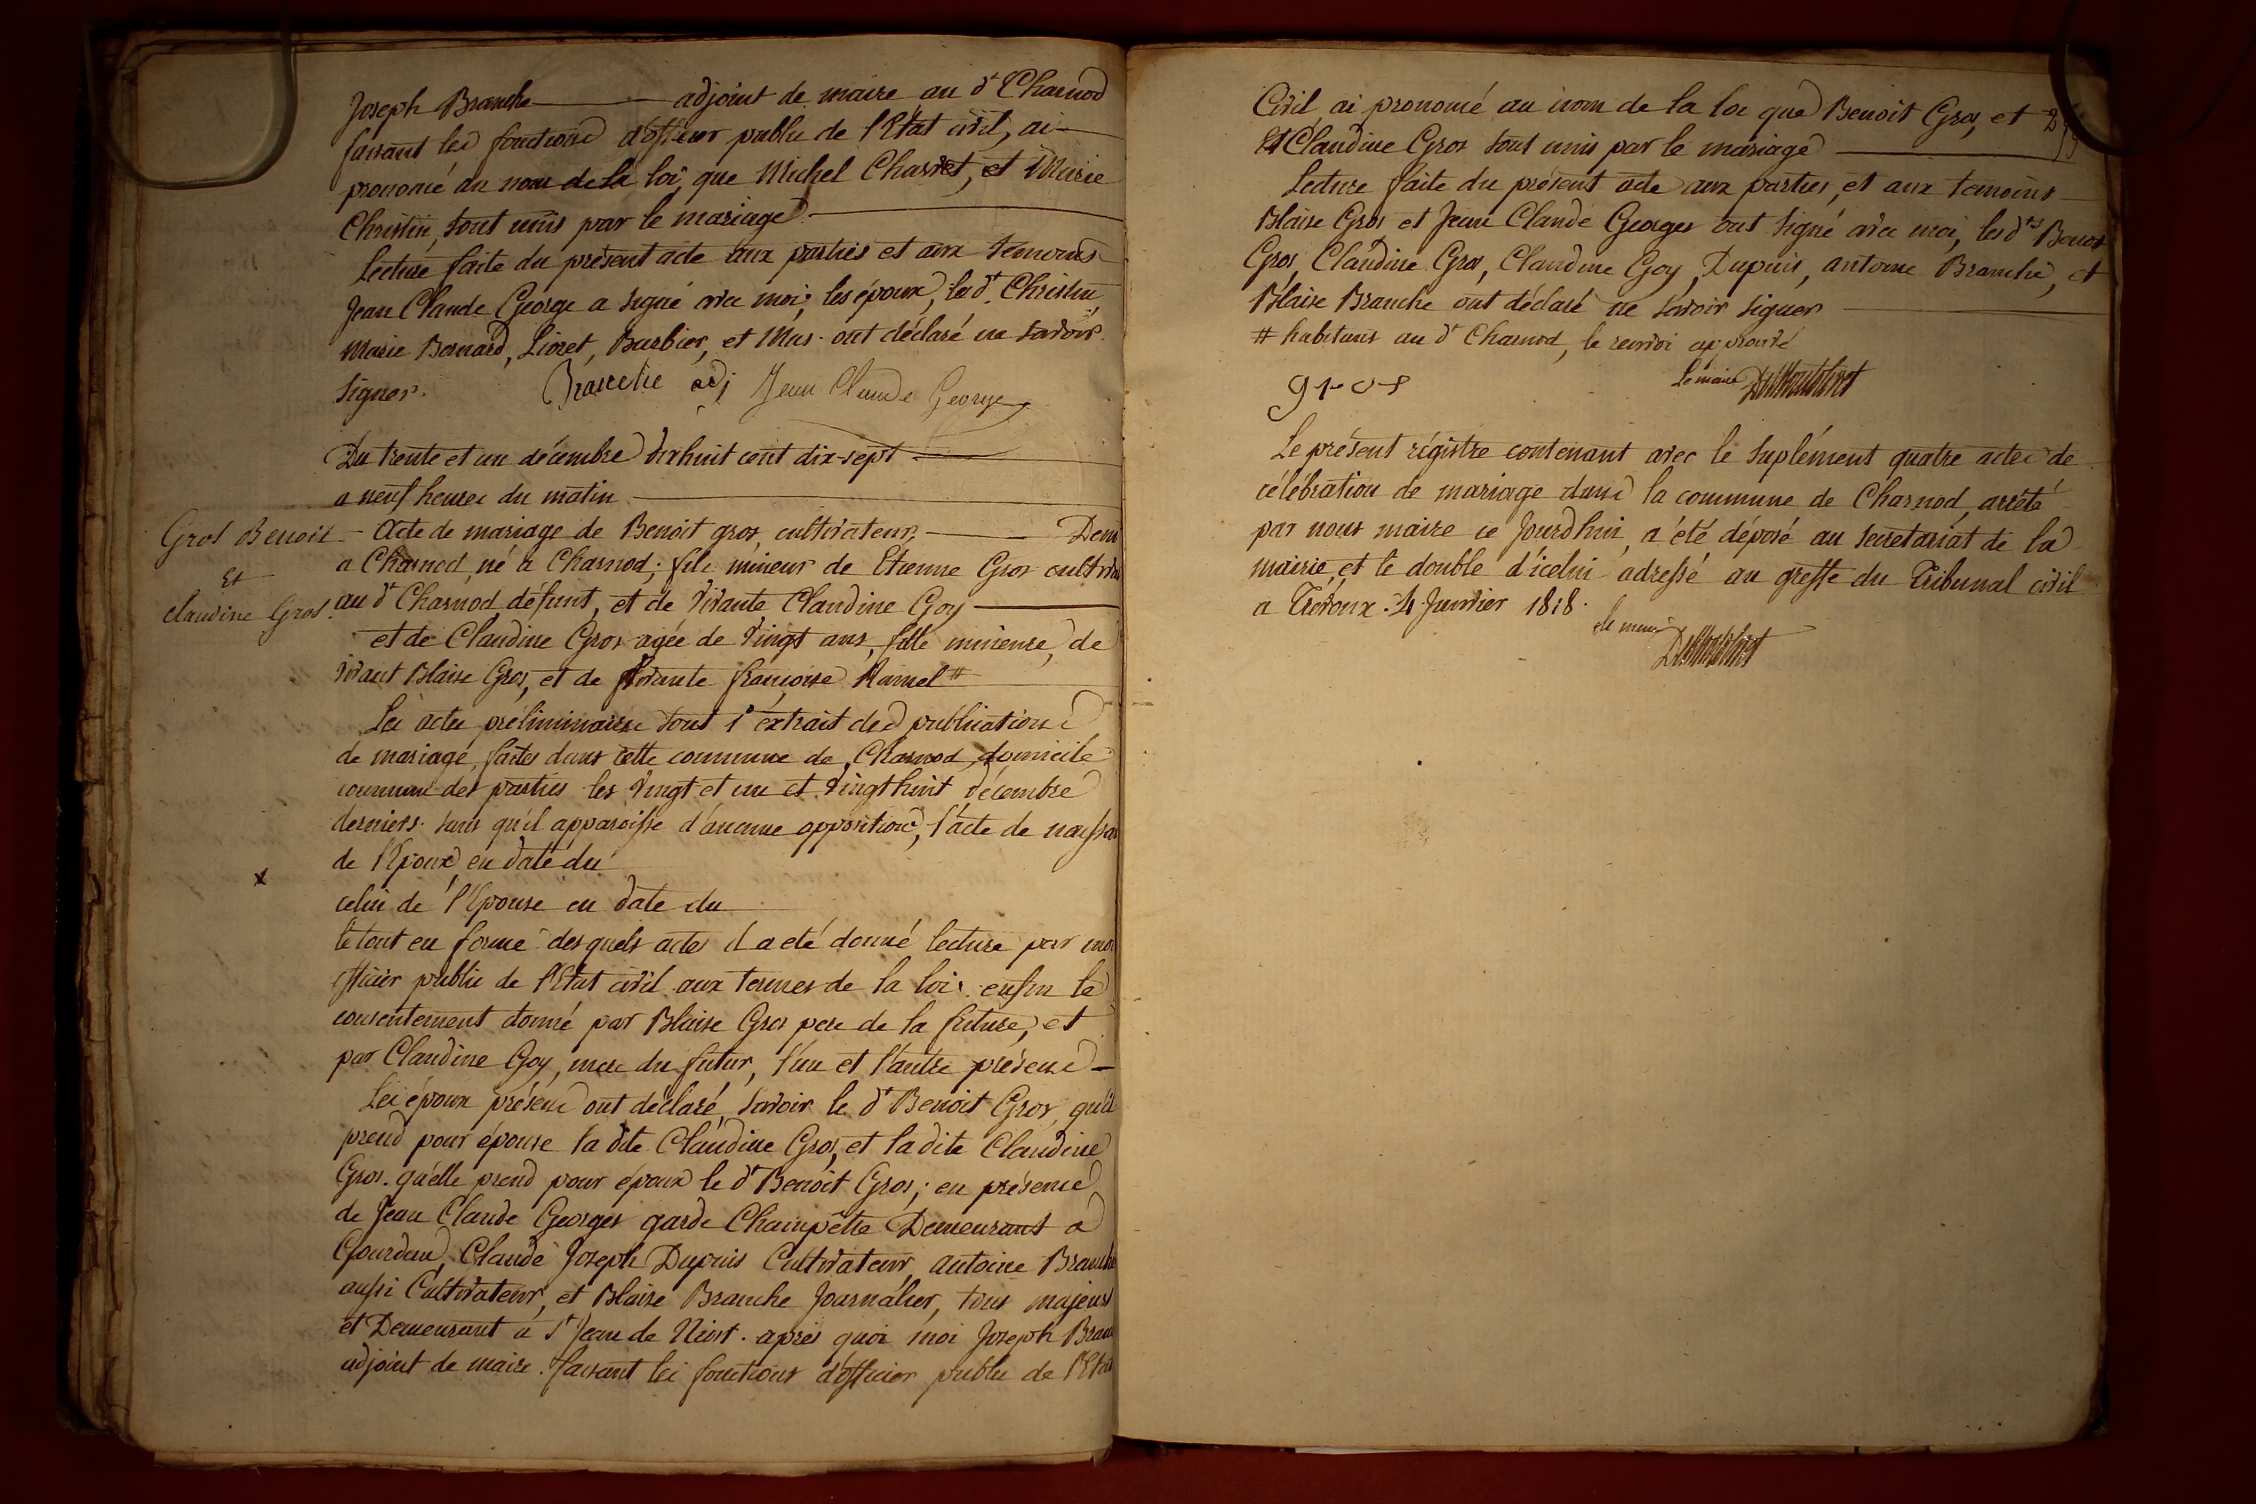 Joseph Branche adjoint de maire au dt Charnod
faisant les fonctions d'officier public de l'Etat civil, ai
prononcé au nom de la loi, que Michel Charvet, et Marie
Christin, sont unis par le mariage
Lecture faite du présent acte aux parties et aux témoins
Jean Claude George a signé avec moi; les époux, led dt. Christin
Marie Bernard, Lioret, Barbier, et Mas. ont déclaré ne savoir
signer.
Branche adj Jean Claude George
Du trente et un décembre dixhuit cent dix-sept
a neuf heures du matin
Gros Benoit
Et
Claudine Gros.
Acte de mariage de Benoit gros, cultivateur, Dem
a Charnod, né a Charnod; fils mineur de Etienne Gros cultiva
au dt Charnod défunt, et de vivante Claudine Goy
et de Claudine Gros agée de vingt ans, fille mineure, de
vivant Blaise Gros, et de vivante françoise Hamel #
Les actes préliminaires sont 1° extrait des publications
de mariage, faites dans cette commune de Charnod, domicile
commun des parties les vingt et un et vingthuit décembre
derniers. sans qu'il apparoisse d'aucune opposition, l'acte de naissan
de l'Epoux, en date du
x
celui de l'Epouse en date du
le tout en forme desquels actes il a eté donné lecture par moi
officier public de l'Etat civil aux termes de la loi. enfin le
consentement donné par Blaise Gros pere de la future, et
par Claudine Goy, mere du futur, l'un et l'autre présens
Les époux présens ont déclaré, savoir le dt Benoit Gros, qu'il
prend pour épouse la dite Claudine Gros, et ladite Claudine
Gros. qu'elle prend pour époux le dt Benoit Gros; en présence
de Jean Claude Georges garde Champêtre Demeurant a
Gourdan, Claude Joseph Dupuis Cultivateur, antoine Branche
aussi Cultivateur, et Blaise Branche Journalier, tous majeurs
et Demeurant a St Jean de Niost. après quoi moi Joseph Bran
adjoint de maire. faisant les fonctions d'officier public de l'Eta
Civil ai pronomé au nom de la loi que Benoit Gros, et
Et Claudine Gros sont unis par le mariage
Lecture faite du présent acte aux parties, et aux temoins
Blaise Gros et Jean Claude Georges ont signé avec moi, les dts Benoit
Gros, Claudine Gros, Claudine Goy, Dupuis, antoine Branche, et
Blaise Branche ont déclaré ne savoir signer
# habitans au dt Charnod, le renvoi approuvé
gros le maire
Le présent régistre contenant avec le suplément quatre actes de
célébration de mariage dans la commune de Charnod, arrêté
par nous maire ce jourdhui, a été déposé au secretariat de la
mairie, et le double d'icelui adressé au greffe du Tribunal civil
a Trévoux. 4 Janvier 1818.
le maire